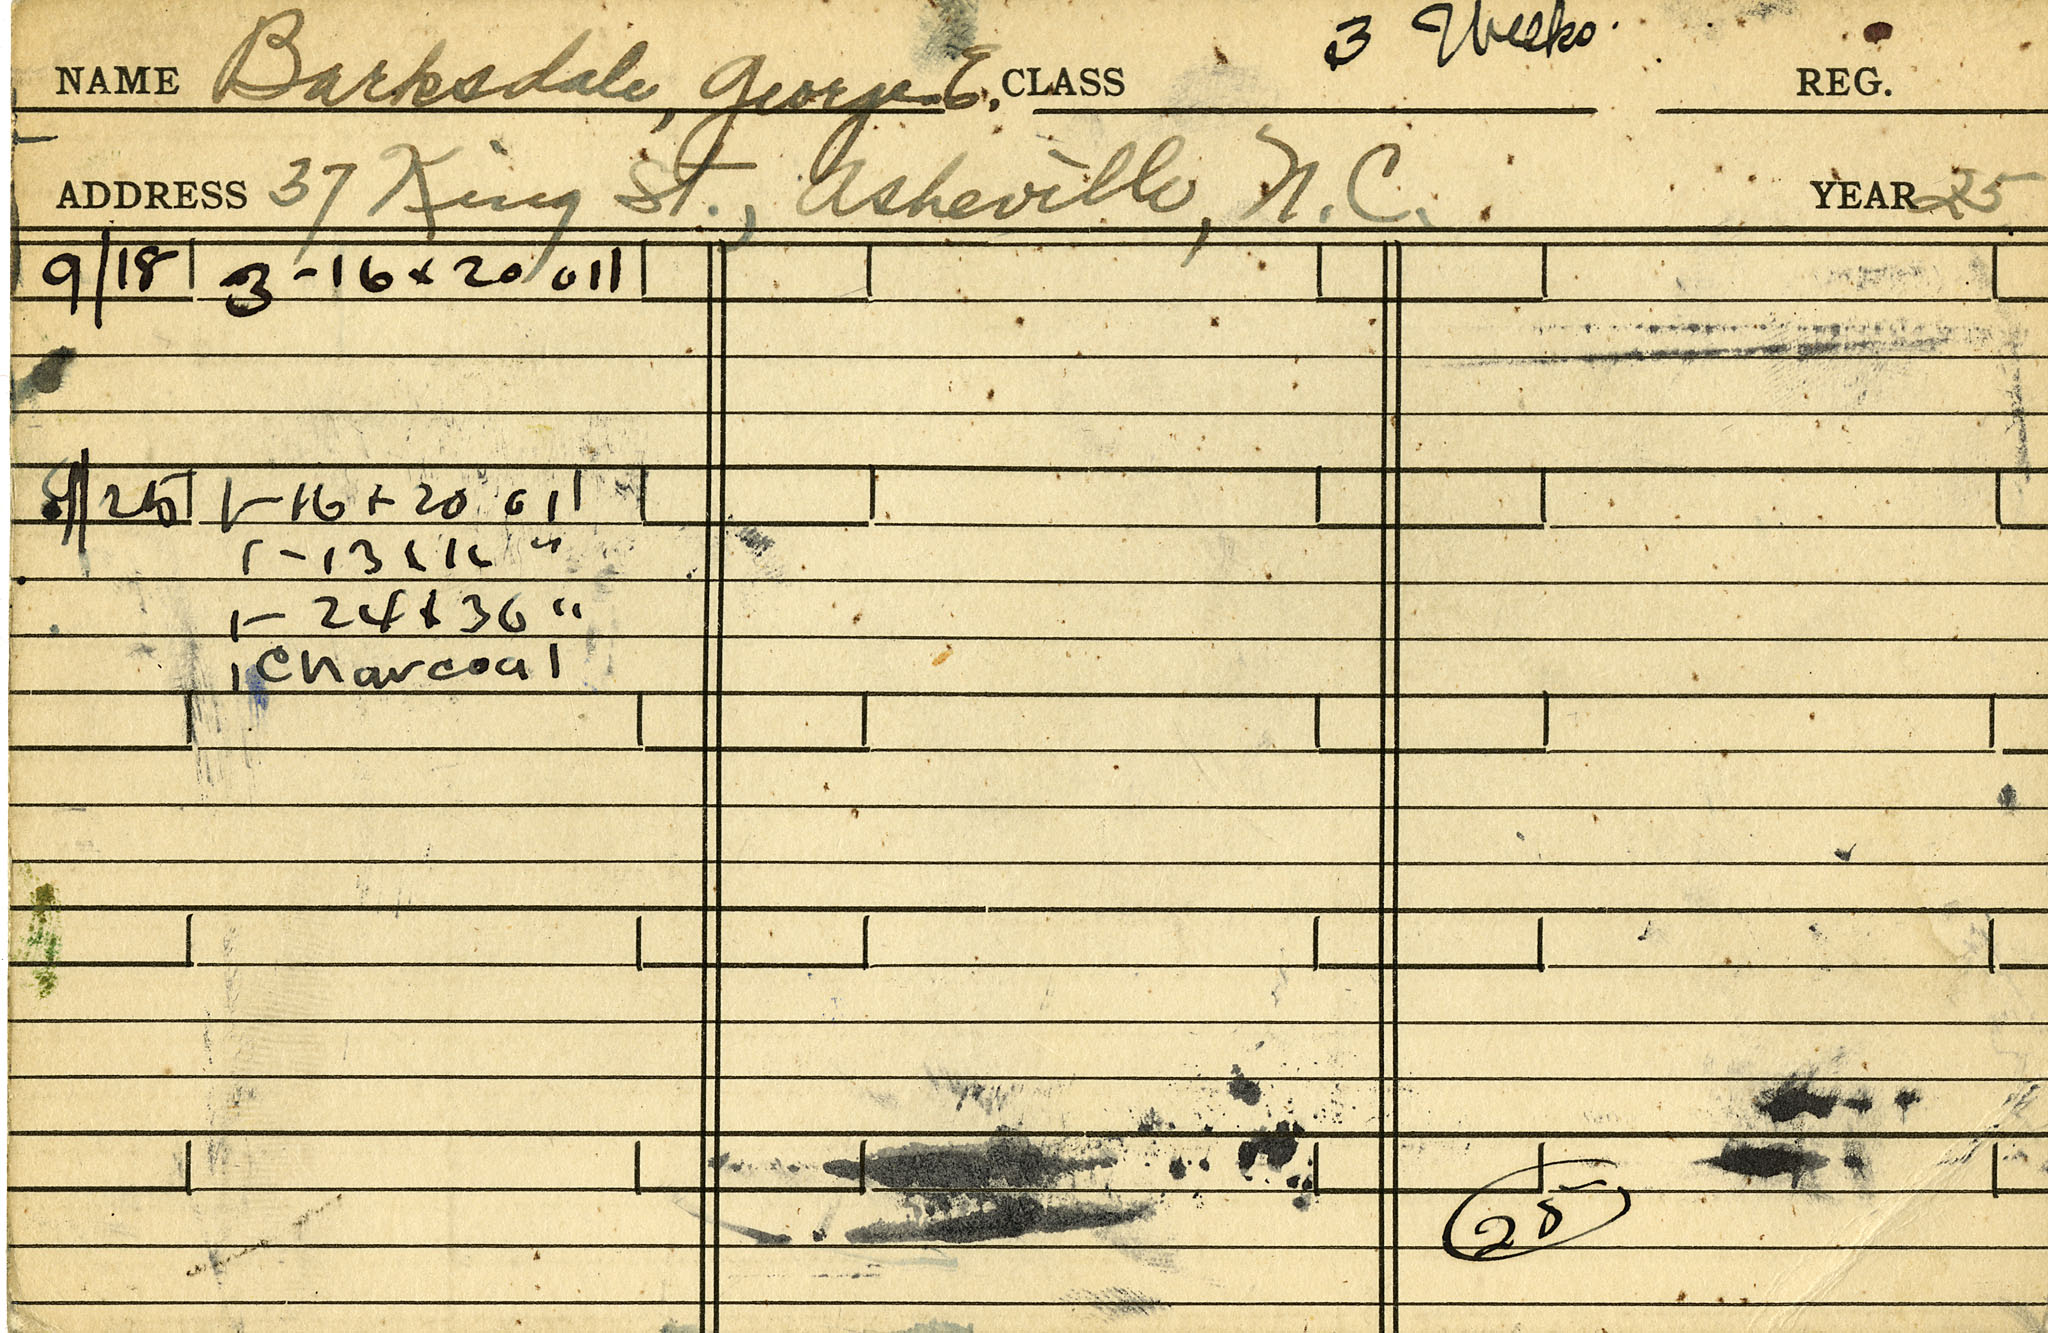 3 Weeks.
NAME Barksdale, George E. CLASS REG.
ADDRESS 37 King St., Asheville, N.C. YEAR 25
9/18 3 - 16 x 20 oil
/25 1 - 16 x 20 oil
1 - 13 x "
1 - 24 x 30 "
1 Charcoal
25